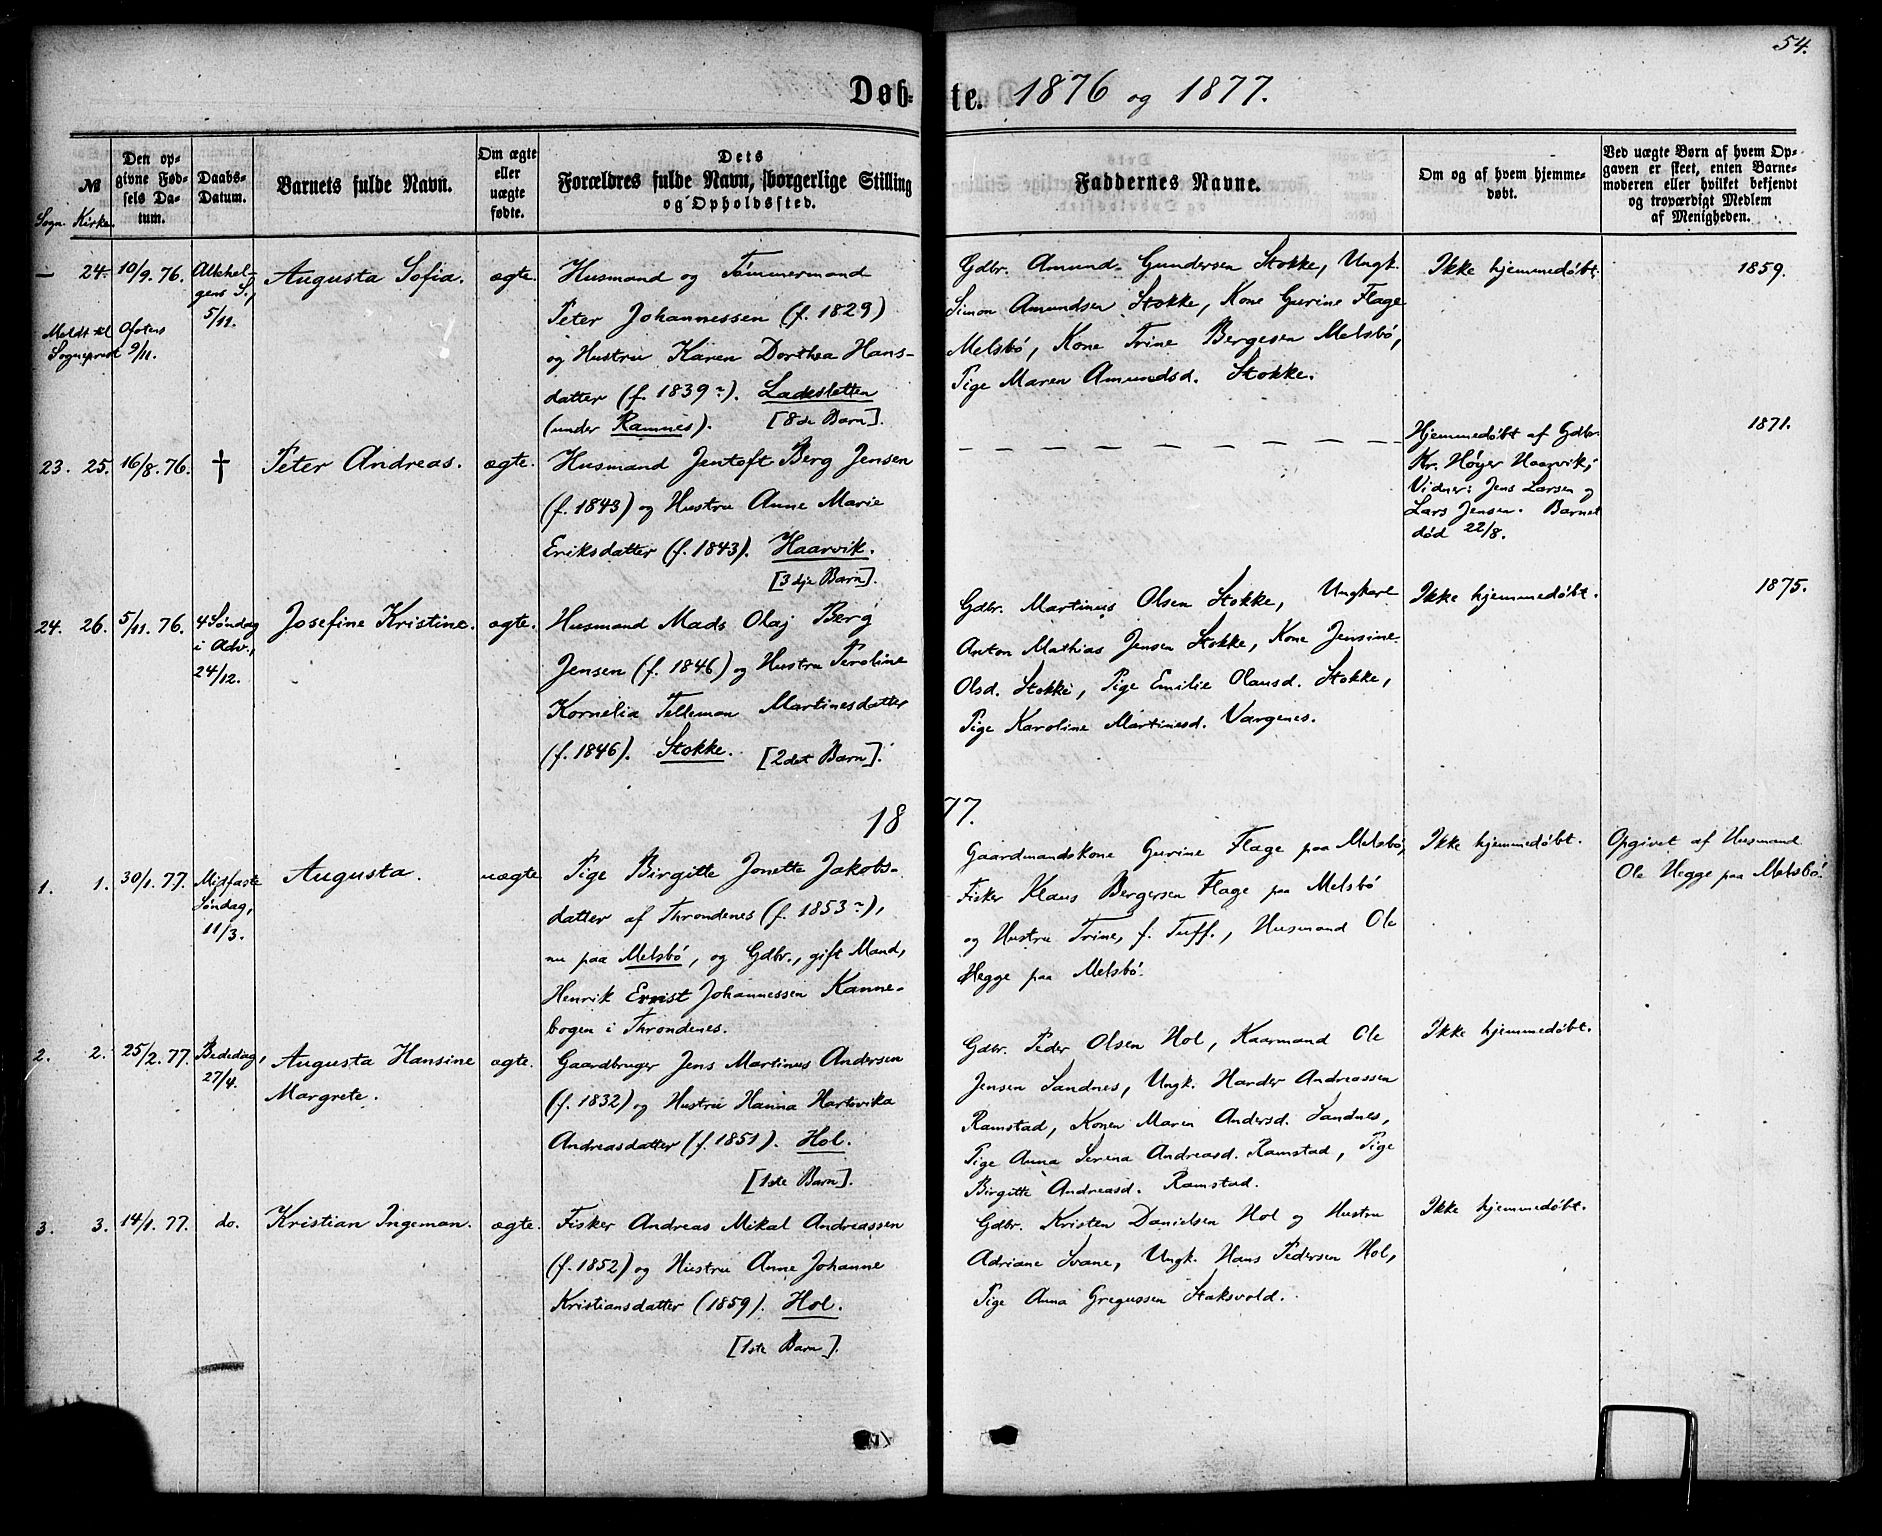 54.
Døb-te. 1876 og 1877.
№
Sogn. Kirke.
Den op-
givne Fød-
sels Da-
tum.
Daabs-
Datum.
Barnets fulde Navn.
Om ægte
eller
uægte
fødte.
Dets
Forældres fulde Navn, borgerlige Stilling
og Opholdssted.
Faddernes Navne.
Om og af hvem hjemme-
døbt.
Ved uægte Børn af hvem Op-
gaven er skeet, enten Barne-
moderen eller hvilket bekjendt
og troværdigt Medlem
af Menigheden.
— 24. 10/9. 76.
Meldt til Ofotens
Sogneprest 9/11.
Allehel-
gens S.,
5/11.
Augusta Sofia.
ægte.
Husmand og Tømmermand
Peter Johannessen (f. 1829)
og Hustru Karen Dorthea Hans-
datter (f. 1839). Ladesletten
(under Ramnes). [8de Barn].
Gdbr. Amund Gundersen Stokke, Ungk.
Simon Amundsen Stokke, Kone Gurine Flage
Melsbø, Kone Trine Bergesen Melsbø,
Pige Maren Amundsd. Stokke.
Ikke hjemmedøbt.
1859.
23. 25. 16/8. 76.
†
Peter Andreas.
ægte.
Husmand Jentoft Berg Jensen
(f. 1843) og Hustru Anne Marie
Eriksdatter (f. 1843). Haarvik.
[3dje Barn].
— — — — — — — — — —
Hjemmedøbt af Gdbr.
Kr. Høyer Haarvik;
Vidner: Jens Larsen og
Lars Jensen. Barnet
død 22/8.
1871.
24. 26. 5/11. 76.
4 Søndag
i Adv.,
24/12.
Josefine Kristine.
ægte.
Husmand Mads Olaj Berg
Jensen (f. 1846) og Hustru Peroline
Kornelia Telleman Martinesdatter
(f. 1846). Stokke. [2det Barn].
Gdbr. Martinus Olsen Stokke, Ungkarl
Anton Mathias Jensen Stokke, Kone Jensine
Olsd. Stokke, Pige Emilie Olausd. Stokke,
Pige Karoline Martinesd. Vargenes.
Ikke hjemmedøbt.
1875.
1877.
1. 1. 30/1. 77.
Midfaste
Søndag,
11/3.
Augusta.
uægte
Pige Birgitte Jonette Jakobs-
datter af Throndenes (f. 1853),
nu paa Melsbø, og Gdbr., gift Mand,
Henrik Ernst Johannessen Kanne-
bogen i Throndenes.
Gaardmandskone Gurine Flage paa Melsbø,
Fisker Klaus Bergersen Flage paa Melsbø
og Hustru Trine, f. Tuff., Husmand Ole
Hegge paa Melsbø.
Ikke hjemmedøbt.
Opgivet af Husmand
Ole Hegge paa Melsbø.
2. 2. 25/2. 77.
Bededag,
27/4.
Augusta Hansine
Margrete.
ægte.
Gaardbruger Jens Martinus Andersen
(f. 1832) og Hustru Hanna Hartvika
Andreasdatter (f. 1851). Hol.
[1ste Barn].
Gdbr. Peder Olsen Hol, Kaarmand Ole
Jensen Sandnes, Ungk. Harder Andreassen
Ramstad, Konen Maren Andersd. Sandnes,
Pige Anna Serena Andreasd. Ramstad, Pige
Birgitte Andreasd. Ramstad.
Ikke hjemmedøbt.
3. 3. 14/1. 77.
do.
Kristian Ingeman.
ægte.
Fisker Andreas Mikal Andreassen
(f. 1852) og Hustru Anne Johanne
Kristiansdatter (1859). Hol.
[1ste Barn].
Gdbr. Kristen Danielsen Hol og Hustru
Adriane Svane, Ungk. Hans Pedersen Hol,
Pige Anna Gregussen Staksvold.
Ikke hjemmedøbt.